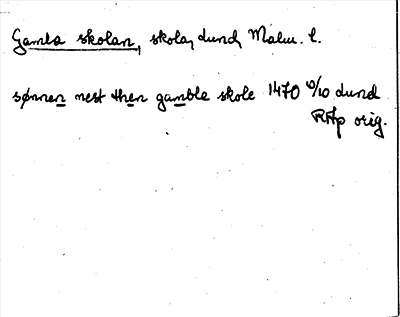 Gamla skolan, skola, Lund, Malm. l.
sønnen nest then gamble skole 1470 6/10 Lund
RAp orig.